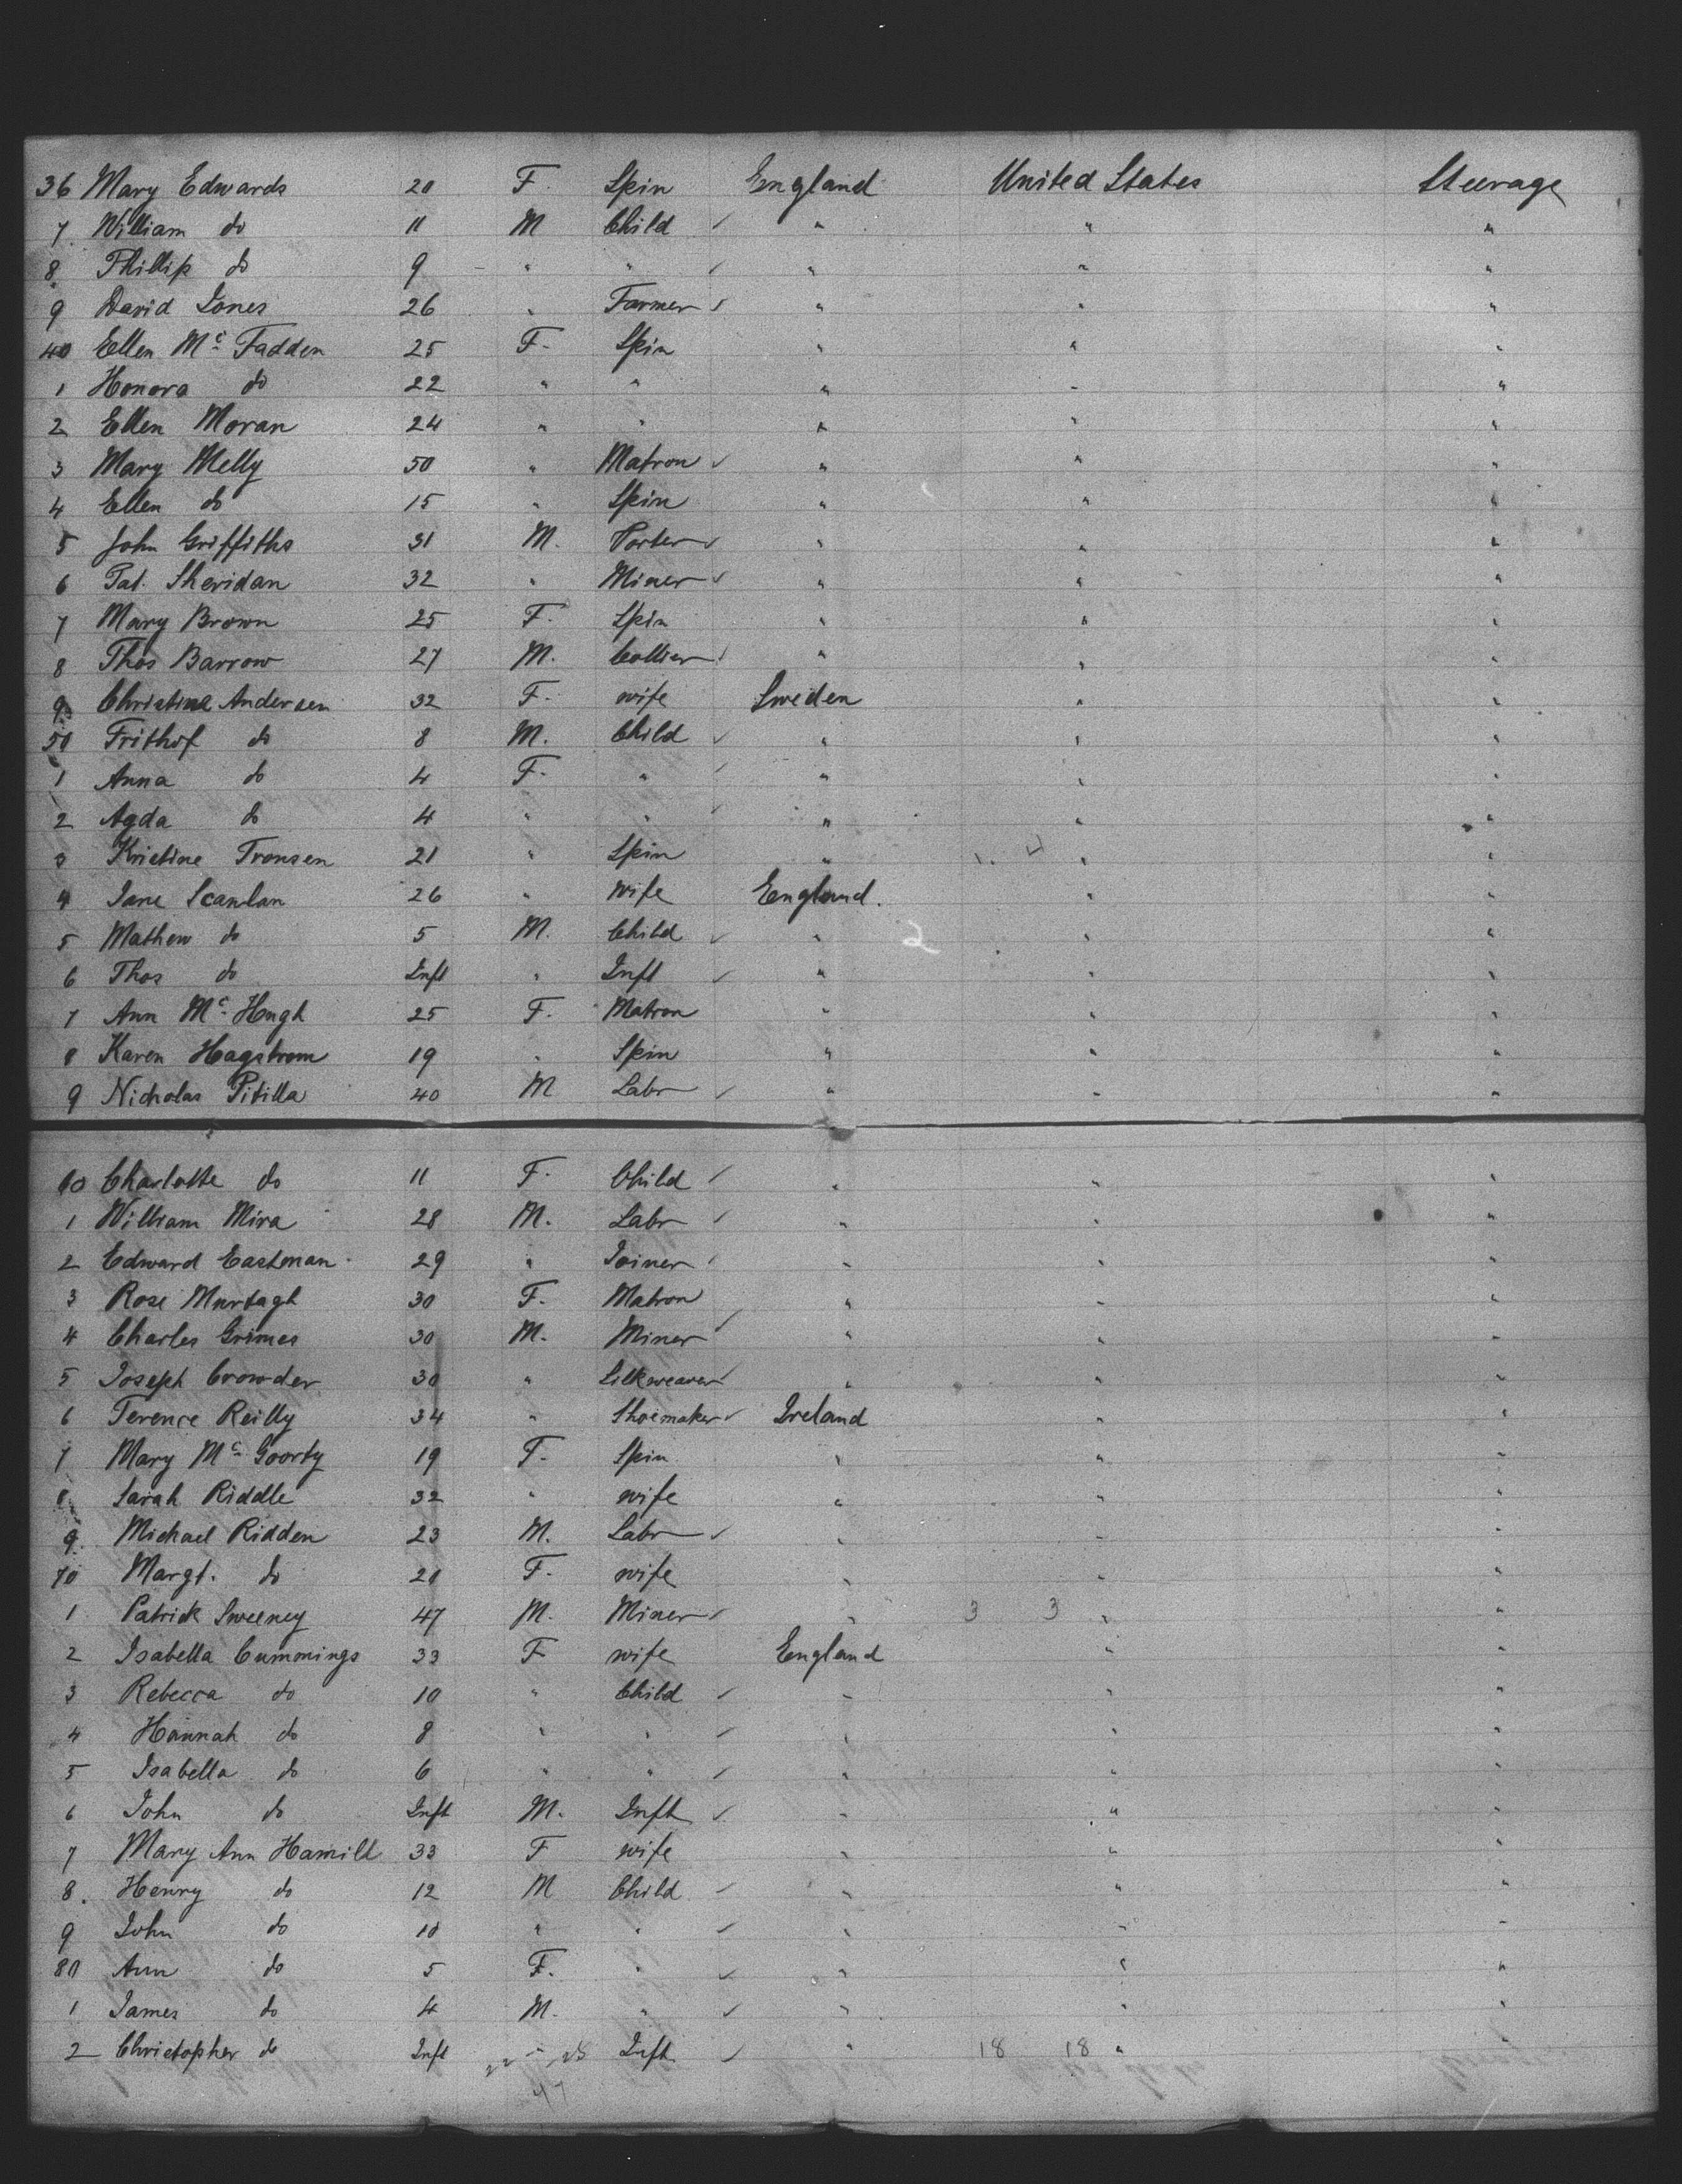 36 Mary Edwards 20 F. Spin England United States Steerage
7. William do 11 M Child ✓ " " "
8. Phillip do 9 " " ✓ " " "
9 David Jones 26 " Farmer ✓ " " "
40 Ellen Mc Fadden 25 F. Spin " " "
1 Honora do 22 " " " " "
2 Ellen Moran 24 " " " " "
3 Mary Melly 50 " Matron ✓ " " "
4 Ellen do 15 " Spin " " "
5 John Griffiths 31 M. Porter ✓ " " "
6 Pat. Sheridan 32 " Miner ✓ " " "
7 Mary Brown 25 F. Spin " " "
8 Thos Barrow 27 M. Collier ✓ " " "
9 Christine Andersen 32 F. wife Sweden " "
50 Frithof do 8 M. Child ✓ " " "
1 Anna do 4 F. " ✓ " " "
2 Agda do 4 " " ✓ " " "
3 Kristine Tronsen 21 " Spin " " "
4 Jane Scanlan 26 " wife England. " "
5 Mathew do 5 M. Child ✓ " 2 " "
6 Thos do Inft " Inft ✓ " " "
7 Ann Mc Hugh 25 F. Matron " " "
8 Karen Hagstrom 19 " Spin " " "
9 Nicholas Pitilla 40 M Labr ✓ " " "
60 Charlotte do 11 F. Child ✓ " " "
1 William Mira 28 M. Labr ✓ " " "
2 Edward Eastman 29 " Joiner ✓ " " "
3 Rose Murtagh 30 F. Matron " " "
4 Charles Grimes 30 M. Miner ✓ " " "
5 Joseph Crowder 30 " Silkweaver ✓ " " "
6 Terence Reilly 34 " Shoemaker ✓ Ireland " "
7 Mary Mc Goorty 19 F. Spin " " "
8 Sarah Riddle 32 " wife " " "
9. Michael Ridden 23 M. Labr ✓ " " "
70 Margt. do 20 F. wife " " "
1 Patrick Sweeney 47 M. Miner ✓ " 3 3 " "
2 Isabella Cummings 33 F wife England " "
3 Rebecca do 10 " Child ✓ " " "
4 Hannah do 8 " " ✓ " " "
5 Isabella do 6 " " ✓ " " "
6 John do Inft M. Inft ✓ " " "
7 Mary Ann Hamill 33 F wife " " "
8. Henry do 12 M Child ✓ " " "
9 John do 10 " " ✓ " " "
80 Ann do 5 F. " ✓ " " "
1 James do 4 M. " ✓ " " "
2 Christopher do Inft " Inft ✓ " 18 18 " "
47